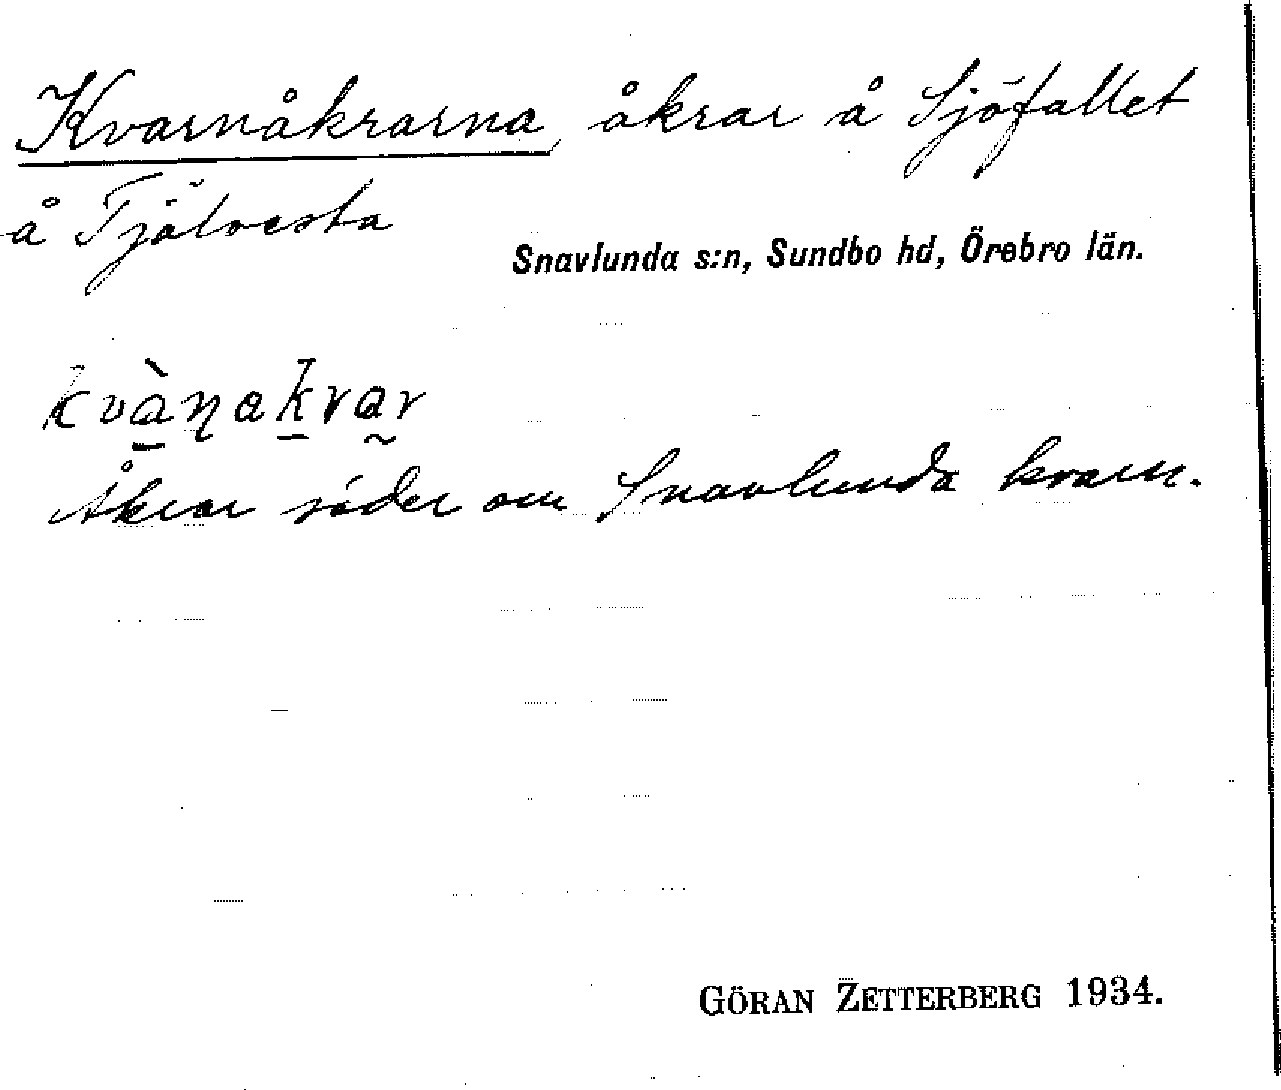 Kvarnåkrarna, åkrar å Sjöfallet
å Tjälvesta
Snavlunda s:n, Sundbo hd, Örebro län.
kvàṉakrar
Åkrar söder om Snavlunda kvarn.
GÖRAN ZETTERBERG 1934.